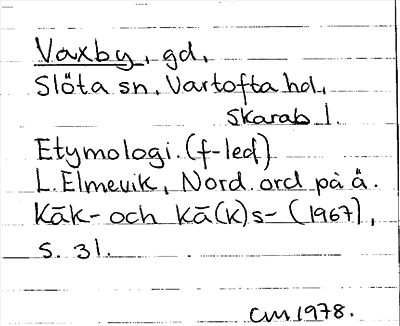 Vaxby, gd,
Slöta sn, Vartofta hd,
Skarab l.
Etymologi. (f-led)
L. Elmevik, Nord. ord på ä.
Kāk- och kā(k)s- (1967),
s. 31.
CM 1978.